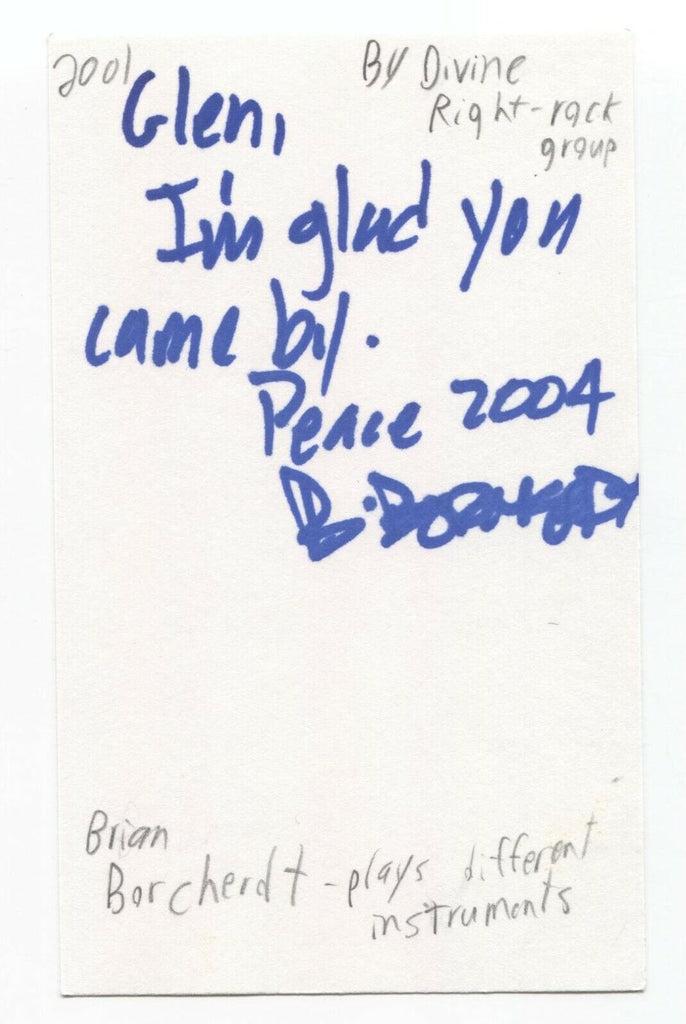 2001
By Divine
Right-rock
group
Glen,
I'm glad you
came by.
Peace 2004
B. Borcherdt
Brian
Borcherdt - plays different
instruments